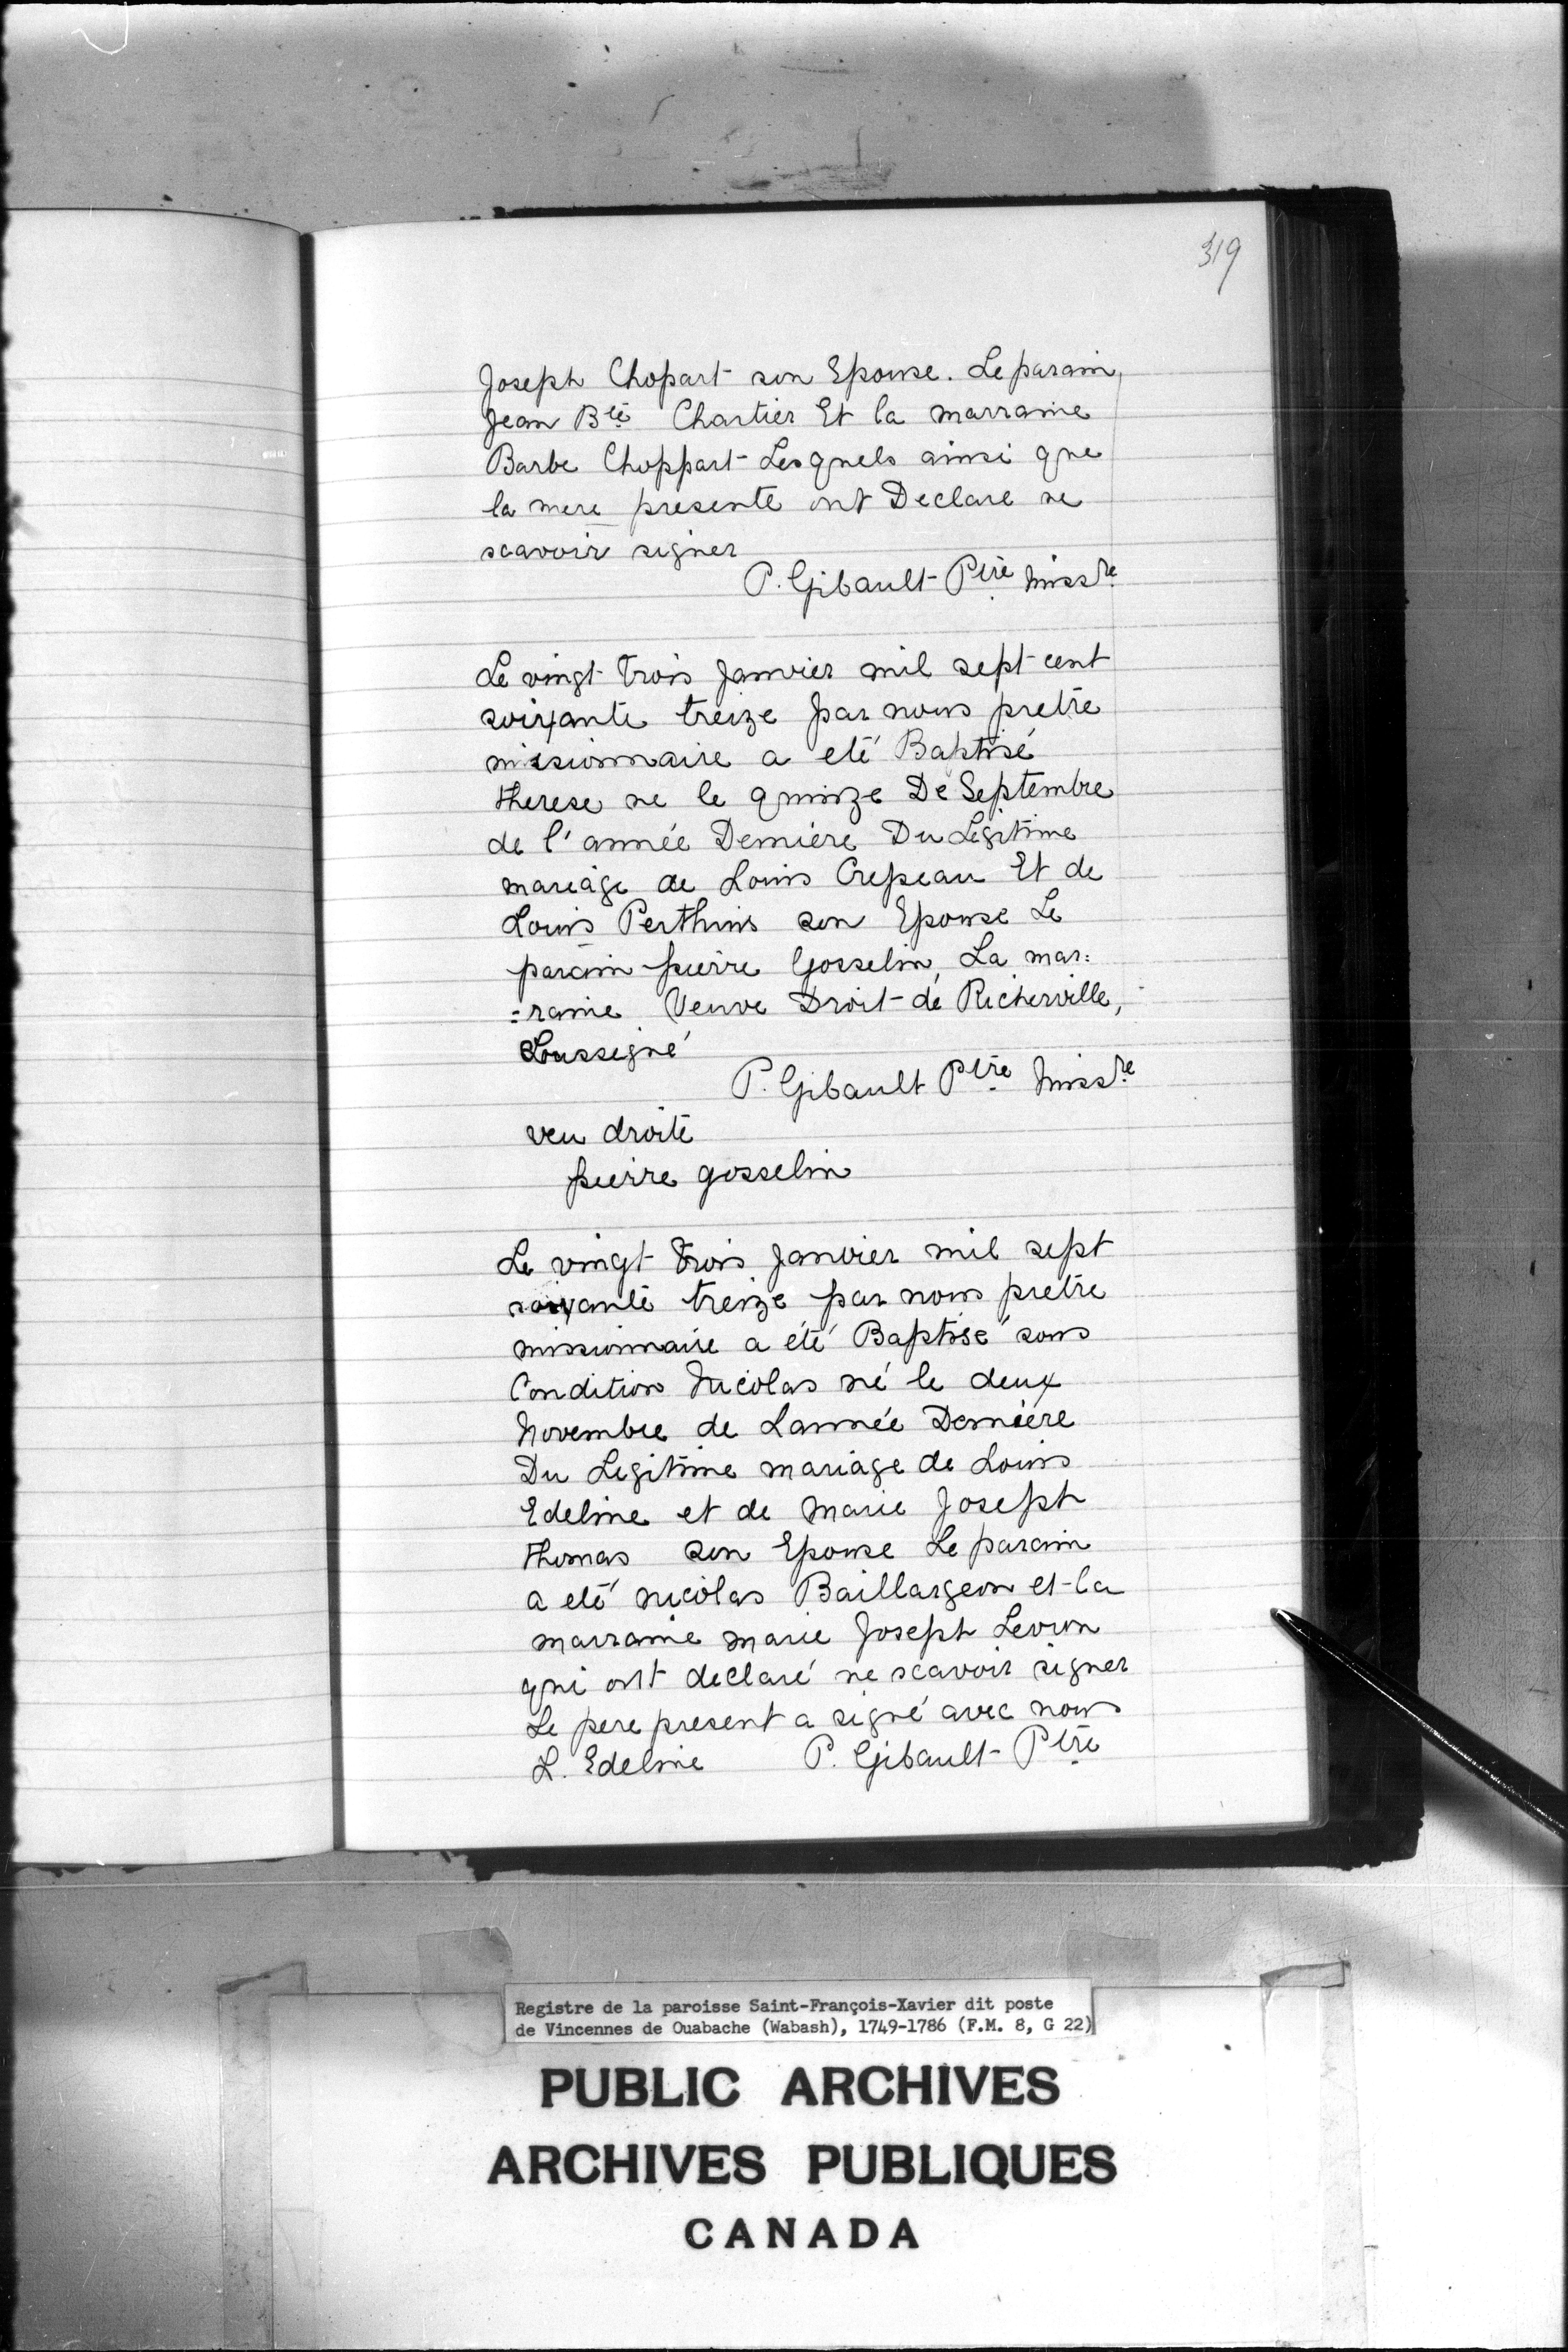 319
Joseph Chopart son Epouse. Le parain
Jean Bte Chartier Et la marraine
Barbe Choppart Lesquels ainsi que
la mere presente ont Declare ne
scavoir signer
P. Gibault Ptre Missre
Le vingt trois Janvier mil sept cent
soixante treize par nous pretre
missionnaire a eté Baptisé
therese ne le quinze De Septembre
de l'année Derniere Du Legitime
mariage de Louis Crepeau Et de
Louis Perthuis son Epouse Le
parain pierre Gosselin, La mar=
=raine Veuve Droit de Richerville,
Soussigné
P. Gibault Ptre Missre
veu droite
pierre gosselin
Le vingt trois Janvier mil sept
soixante treize par nous pretre
missionnaire a été Baptisé sous
Condition Nicolas né le deux
Novembre de Lannée Derniére
Du Legitime mariage de Louis
Edeline et de Marie Joseph
thomas son Epouse Le parain
a eté nicolas Baillargeon et la
marraine marie Joseph Levron
qui ont declaré ne scavoir signer
Le pere present a signé avec nous
L. Edeline P. Gibault Ptre
Registre de la paroisse Saint-François-Xavier dit poste
de Vincennes de Ouabache (Wabash), 1749-1786 (F.M. 8, G 22)
PUBLIC ARCHIVES
ARCHIVES PUBLIQUES
CANADA